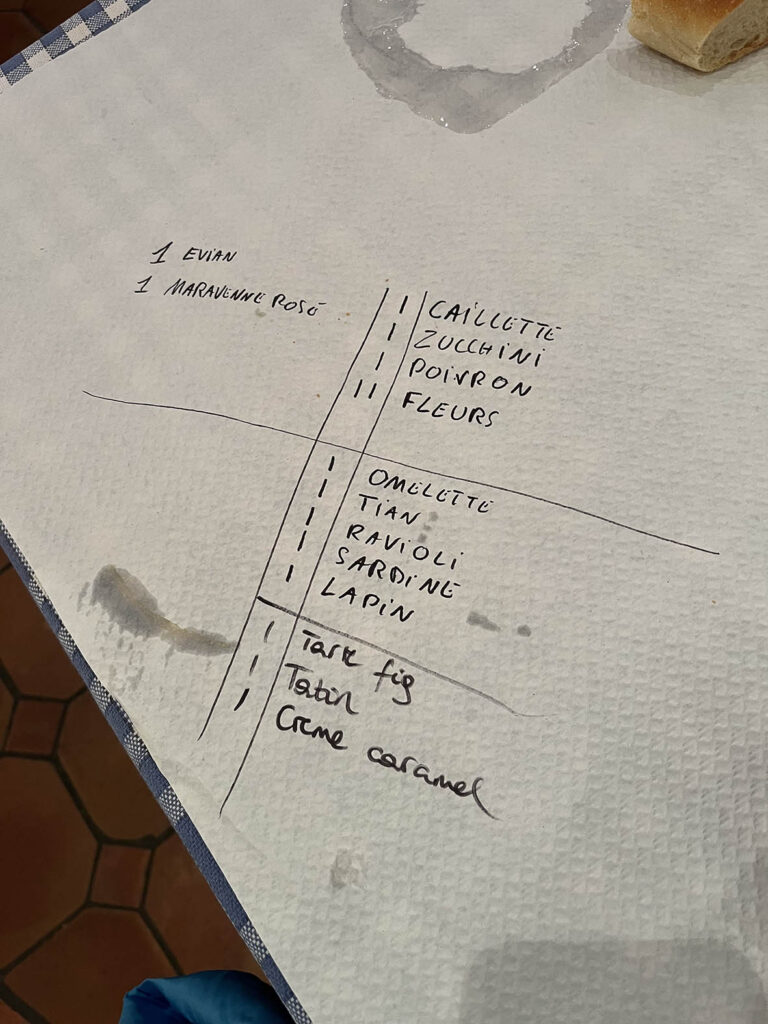 1 EVIAN
1 MARAVENNE ROSÉ
I CAILLETTE
I ZUCCHINI
I POIVRON
II FLEURS
I OMELETTE
I TIAN
I RAVIOLI
I SARDINE
I LAPIN
I Tarte fig
I Tatin
I Creme caramel